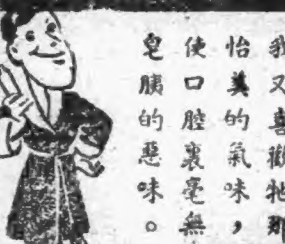 我又喜歡牠那
怡美的氣味，
使口腔裏毫無
皂胰的惡味。